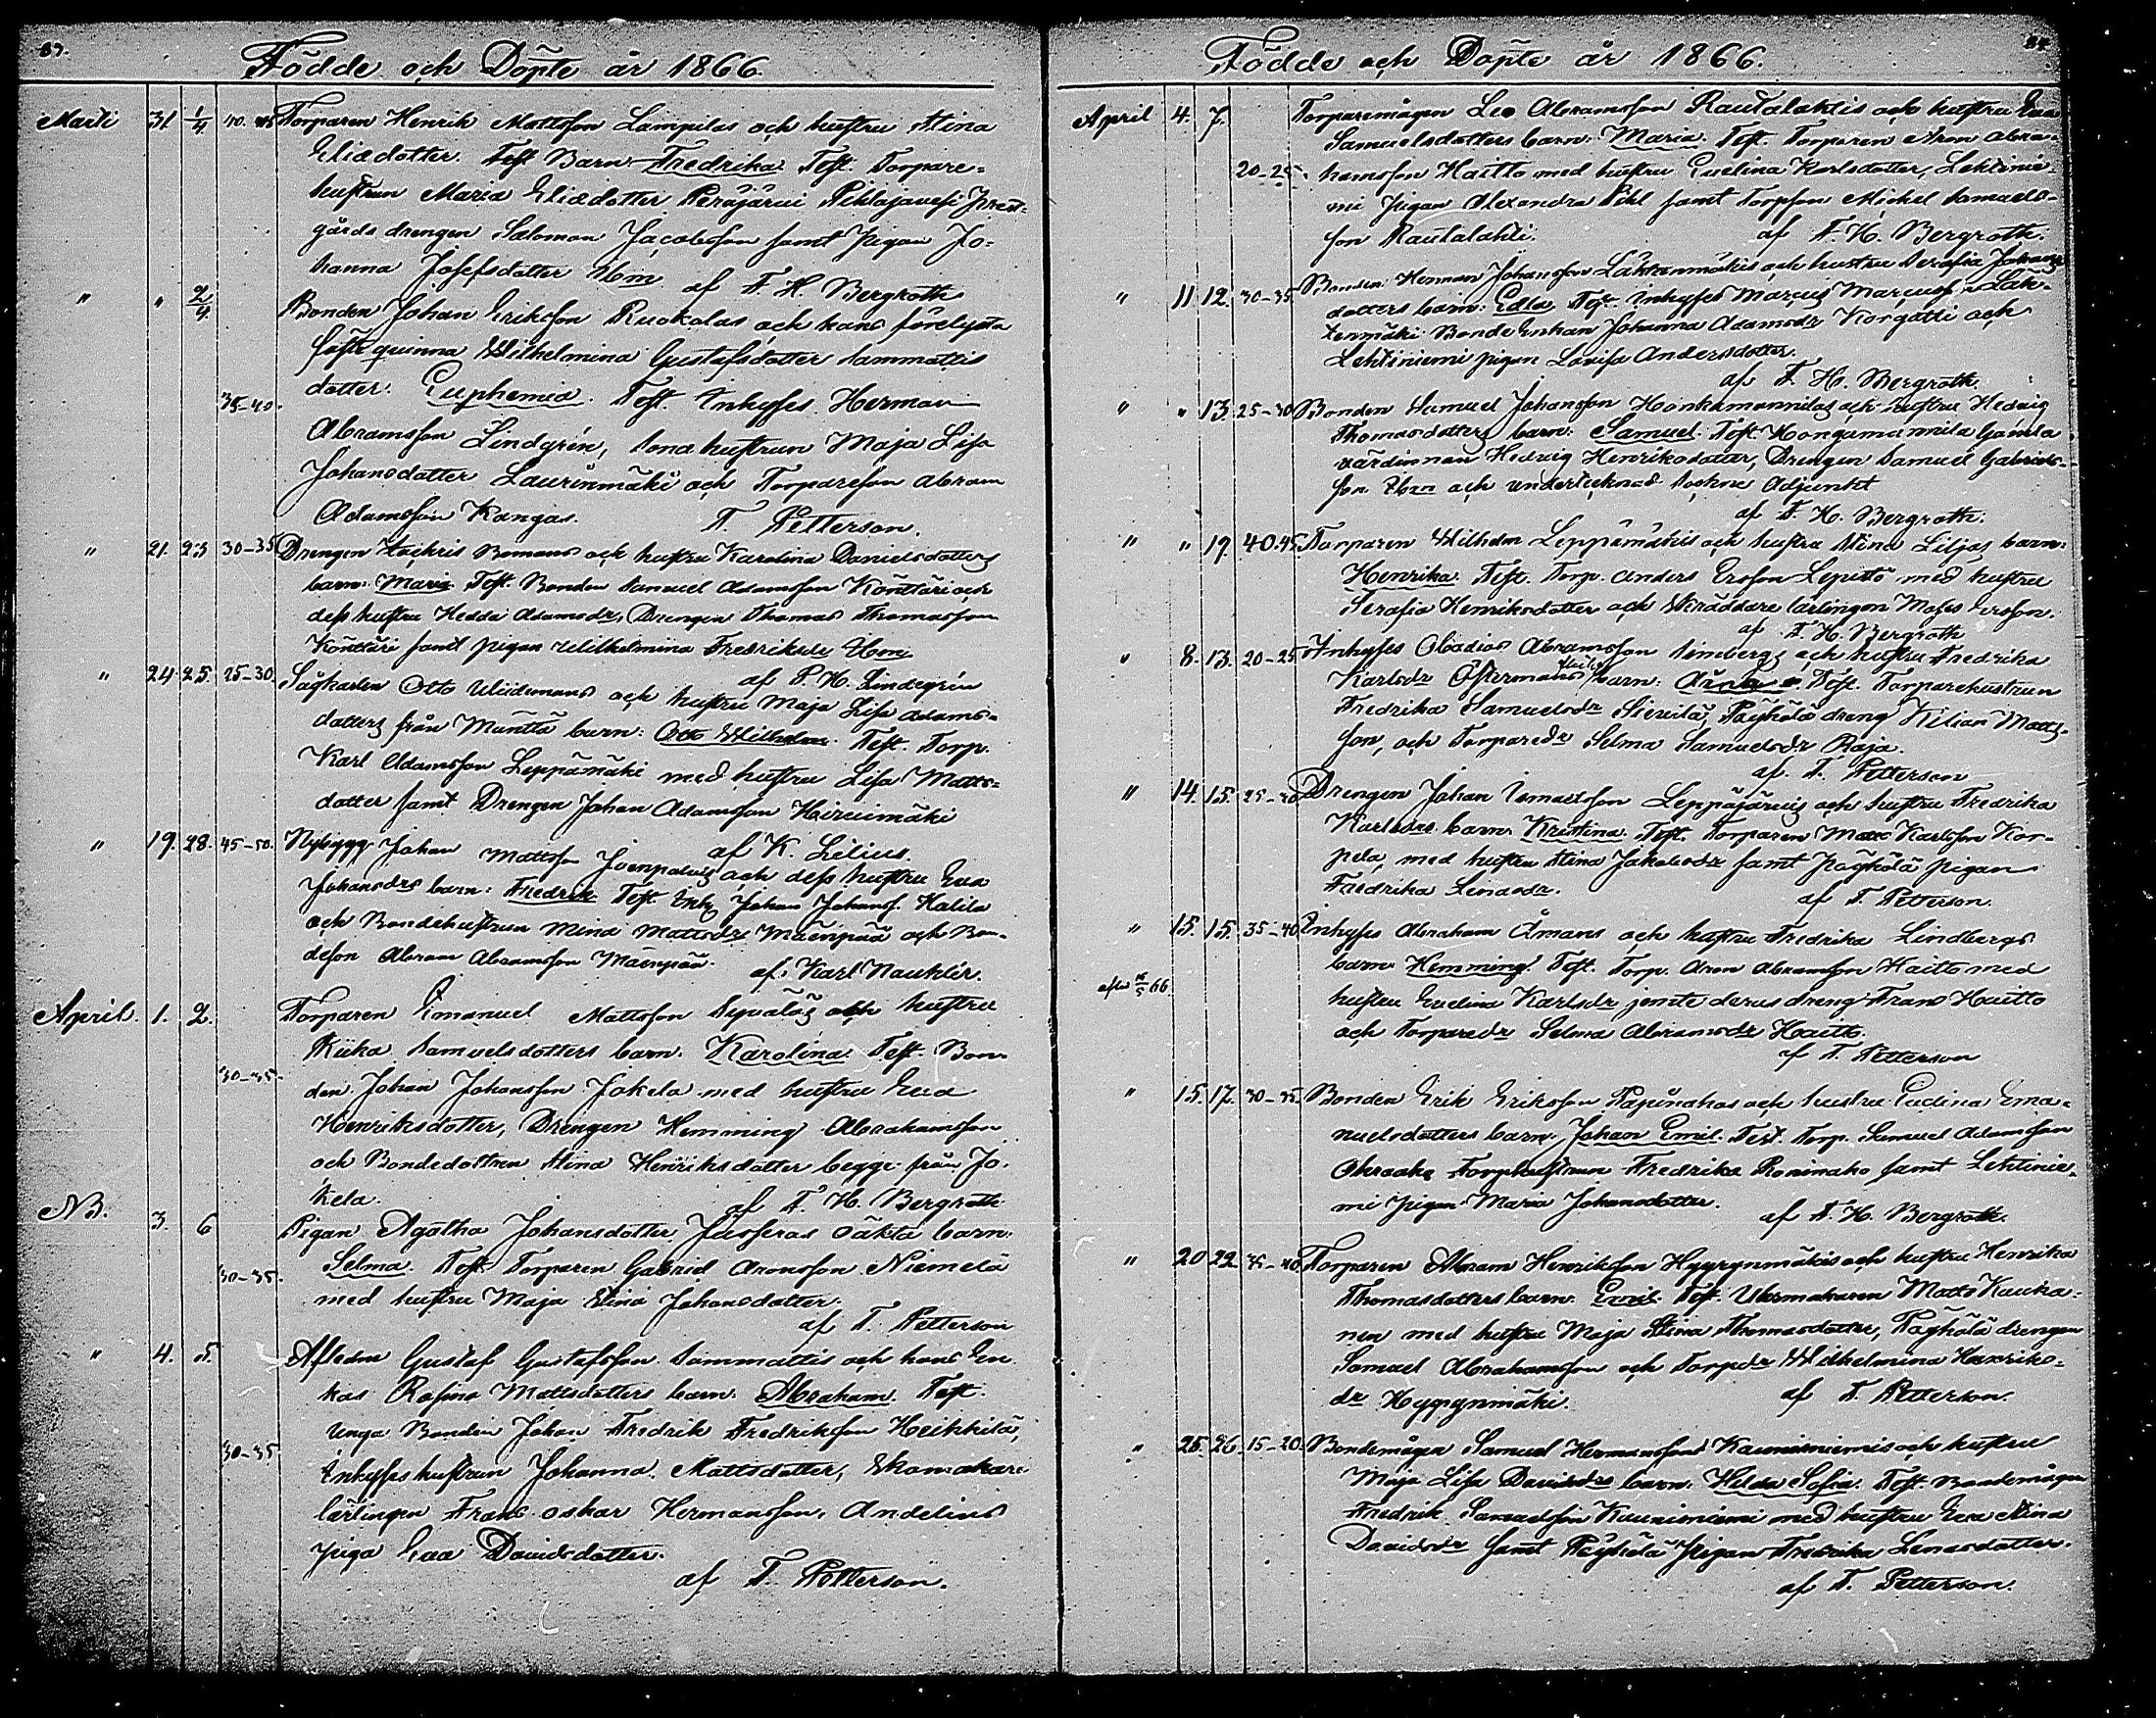 87.
Födde och Döpte år 1866.
Marti 31. 1/4 40-45 Torparen Henrik Mattsson Lampilas och hustru Stina
Eliædotter Test Barn Fredrika. Test. Torpare-
hustrun Maria Eliædotter Peräjärvi Pihlajavesi Prest-
gårds drengen Salomon Jacobsson samt pigan Jo-
hanna Josefsdotter ibm af F. H. Bergroth
" " 2/4 Bonden Johan Eriksson Ruokolas och hans förelysta
fäste quinna Wilhelmina Gustafsdotter Sammattis
35-40. dotter. Euphemia. Test. Inhyses Herman
Abramsson Lindgrén, Sona hustrun Maja Lisa
Johansdotter Laurinmäki och Torpareson Abram
Adamsson Kangas. T. Petterson.
" 21. 23 30-35 Drengen Zachris Bomans och hustru Karolina Danielsdotters
barn: Maria Test. Bonden Samuel Adamsson Könttäri och
dess hustru Hedda Adamsdr, Drengen Thomas Thomasson
Könttäri samt pigan Wilhelmina Fredriksdr Ibm
af P. H. Lindegrén
" 24 25. 25-30 Sågkarlen Otto Widemans och hustru Maja Lisa Adams-
dotters från Mänttä barn: Otto Wilhelm. Test. Torp.
Karl Adamsson Leppämäki med hustru Lisa Matts-
dotter samt Drengen Johan Adamsson Hirvimäki
af K. Lilius.
" 19. 28. 45-50. Nybygg. Johan Mattsson Joenpolvis och dess hustru Eva
Johansdrs barn: Fredrik Test Inh. Johan Johanss. Kalila
och Bondehustrun Mina Mattsdr Mäenpää och Bon-
deson Abram Abramsson Mäenpää. af. Karl Nauklér.
April. 1. 2. Torparen Emanuel Mattsson Sepäläs och hustru
Riika Samuelsdotters barn. Karolina. Test. Bon-
30-35. den Johan Johansson Jokela med hustru Eva
Henriksdotter, Drengen Hemming Abrahamsson
och Bondedottren Stina Henriksdotter begge från Jo-
kela. af F. H. Bergroth
NB. 3. 6 Pigan Agatha Johansdotter Jusseras oäkta barn:
30-35. Selma. Test. Torparen Gabriel Aronsson Niemelä
med hustru Maja Stina Johansdotter.
af T. Petterson
" 4. 5. Afskedne Gustaf Gustafsson Sammattis och hans En-
kas Rosina Mattsdotters barn. Abraham. Test.
Unga Bonden Johan Fredrik Fredriksson Heikkilä,
30-35 Inhyses hustrun Johanna Mattsdotter, Skomakare
lärlingen Frans Oskar Hermansson, Andelins
piga Eva Davidsdotter.
af T. Petterson.
Födde och Döpte år 1866.
April 4. 7. Torparemågen Leo Abramsson Rautalahtis och hustru Eva
Samuelsdotters barn: Maria. Test. Torparen Aron Abra-
20-25. hamsson Haitto med hustru Evelina Karlsdotter, Lehtinie-
mi pigan Alexandra Pihl samt Torpson Mickel Samuels-
son Rautalahti. af F. H. Bergroth.
" 11 12. 30-35. Bonden Herman Johansson Lähtenmäkis och hustru Serafia Johans
dotters barn: Edla Test. Inhyses Marcus Marcusson Läh-
tenmäki Bonde Enkan Johanna Adamsdr Korgatti och
Lehtiniemi pigan Lovisa Andersdotter.
af F. H. Bergroth.
" " 13. 25-30 Bonden Samuel Johansson Honkamannilas och hustru Hedvig
Thomasdotters barn: Samuel. Test. Hongamannila Gamla
värdinnan Hedvig Henriksdotter, Drengen Samuel Gabriels-
son Ibm och undertecknad Sockne Adjunkt
af F. H. Bergroth.
" " 19. 40.45. Torparen Wilhelm Leppämäkis och hustru Stina Liljas barn:
Henrika. Test. Torp. Anders Ersson Lepistö med hustru
Serafia Henriksdotter och Skräddare lärlingen Moses Ersson.
af F. H. Bergroth
" 8. 13. 20-25 Inhyses Obadias Abramsson Simbergs och hustru Fredrika
Karlsdr Östermans barn: Test. Torparehustrun
Fredrika Samuelsdr Sievilä, Päyhölä dreng Kilian Matts-
son, och Torparedr Selma Samuelsdr Raja.
af T. Petterson
" 14. 15. 25-30 Drengen Johan Ismaelsson Leppäjärvis och hustru Fredrika
Karlsdrs barn. Kristina. Test. Torparen Matts Karlsson Kor-
pela, med hustru Stina Jakobsdr samt Päyhölä pigan
Fredrika Linasdr. af T. Petterson.
" 15. 15. 35-40 Inhyses Abraham Åmans och hustru Fredrika Lindbergs
barn Hemming. Test. Torp. Aron Abramsson Haitto med
66. hustru Evelina Karlsdr jemte deras dreng Frans Haitto
och Torparedr Selma Abramsdr Haitto.
af T. Petterson
" 15. 17. 30-35. Bonden Erik Eriksson Papinahos och hustru Eudina Ema-
nuelsdotters barn. Johan Emil. Test. Torp. Samuel Adamsson
Ahraaho Torphustrun Fredrika Roninaho samt Lehtinie-
mi pigan Maria Johansdotter.
af F. H. Bergroth.
" 20 22. 35-40 Torparen Abram Henriksson Hyyrynmäkis och hustru Henrika
Thomasdotters barn. Emil Test. Uhrmakaren Matts Kauka-
nen med hustru Maja Stina Thomasdotter, Päyhölä drengen
Samuel Abrahamsson och Torpdr Wilhelmina Henriks-
dr Hyyrynmäki. af T. Petterson.
" 25. 26 15-20. Bondemågen Samuel Hermanssons Kauniniemis och hustru
Maja Lisa Davidsdrs barn. Hilda Sofia. Test. Bondemågen
Fredrik Samuelsson Kauniniemi med hustru Eva Stina
Davidsdr samt Päyhölä Pigan Fredrika Linasdotter.
af T. Petterson.